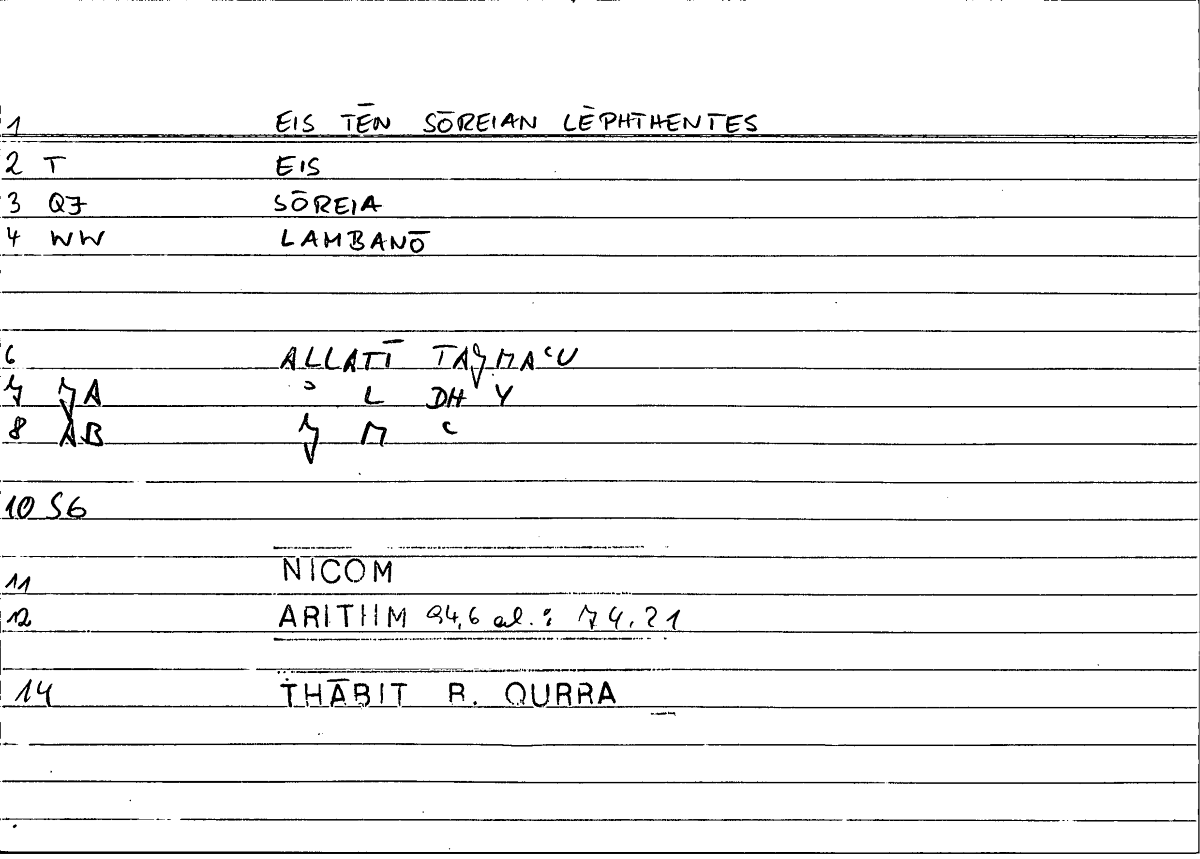 1 EIS TĒN SŌREIAN LĒPHTHENTES
2 T EIS
3 QJ SŌREIA
4 WW LAMBANŌ
6 ALLATĪ TAǦMAʿU
7 ʾ L DH Y
8 AB Ǧ M ʿ
10 S6
11 NICOM
12 ARITHM 94,6 al.: 74.21
14 THĀBIT B. QURRA